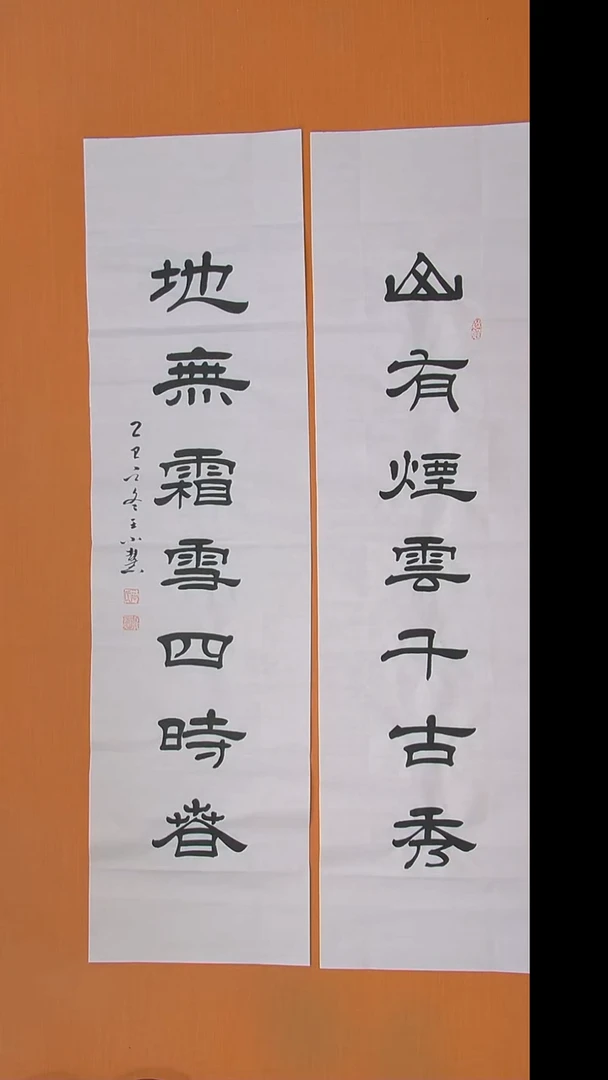 山有煙雲千古秀
地無霜雪四時春
乙巳之冬王小慧